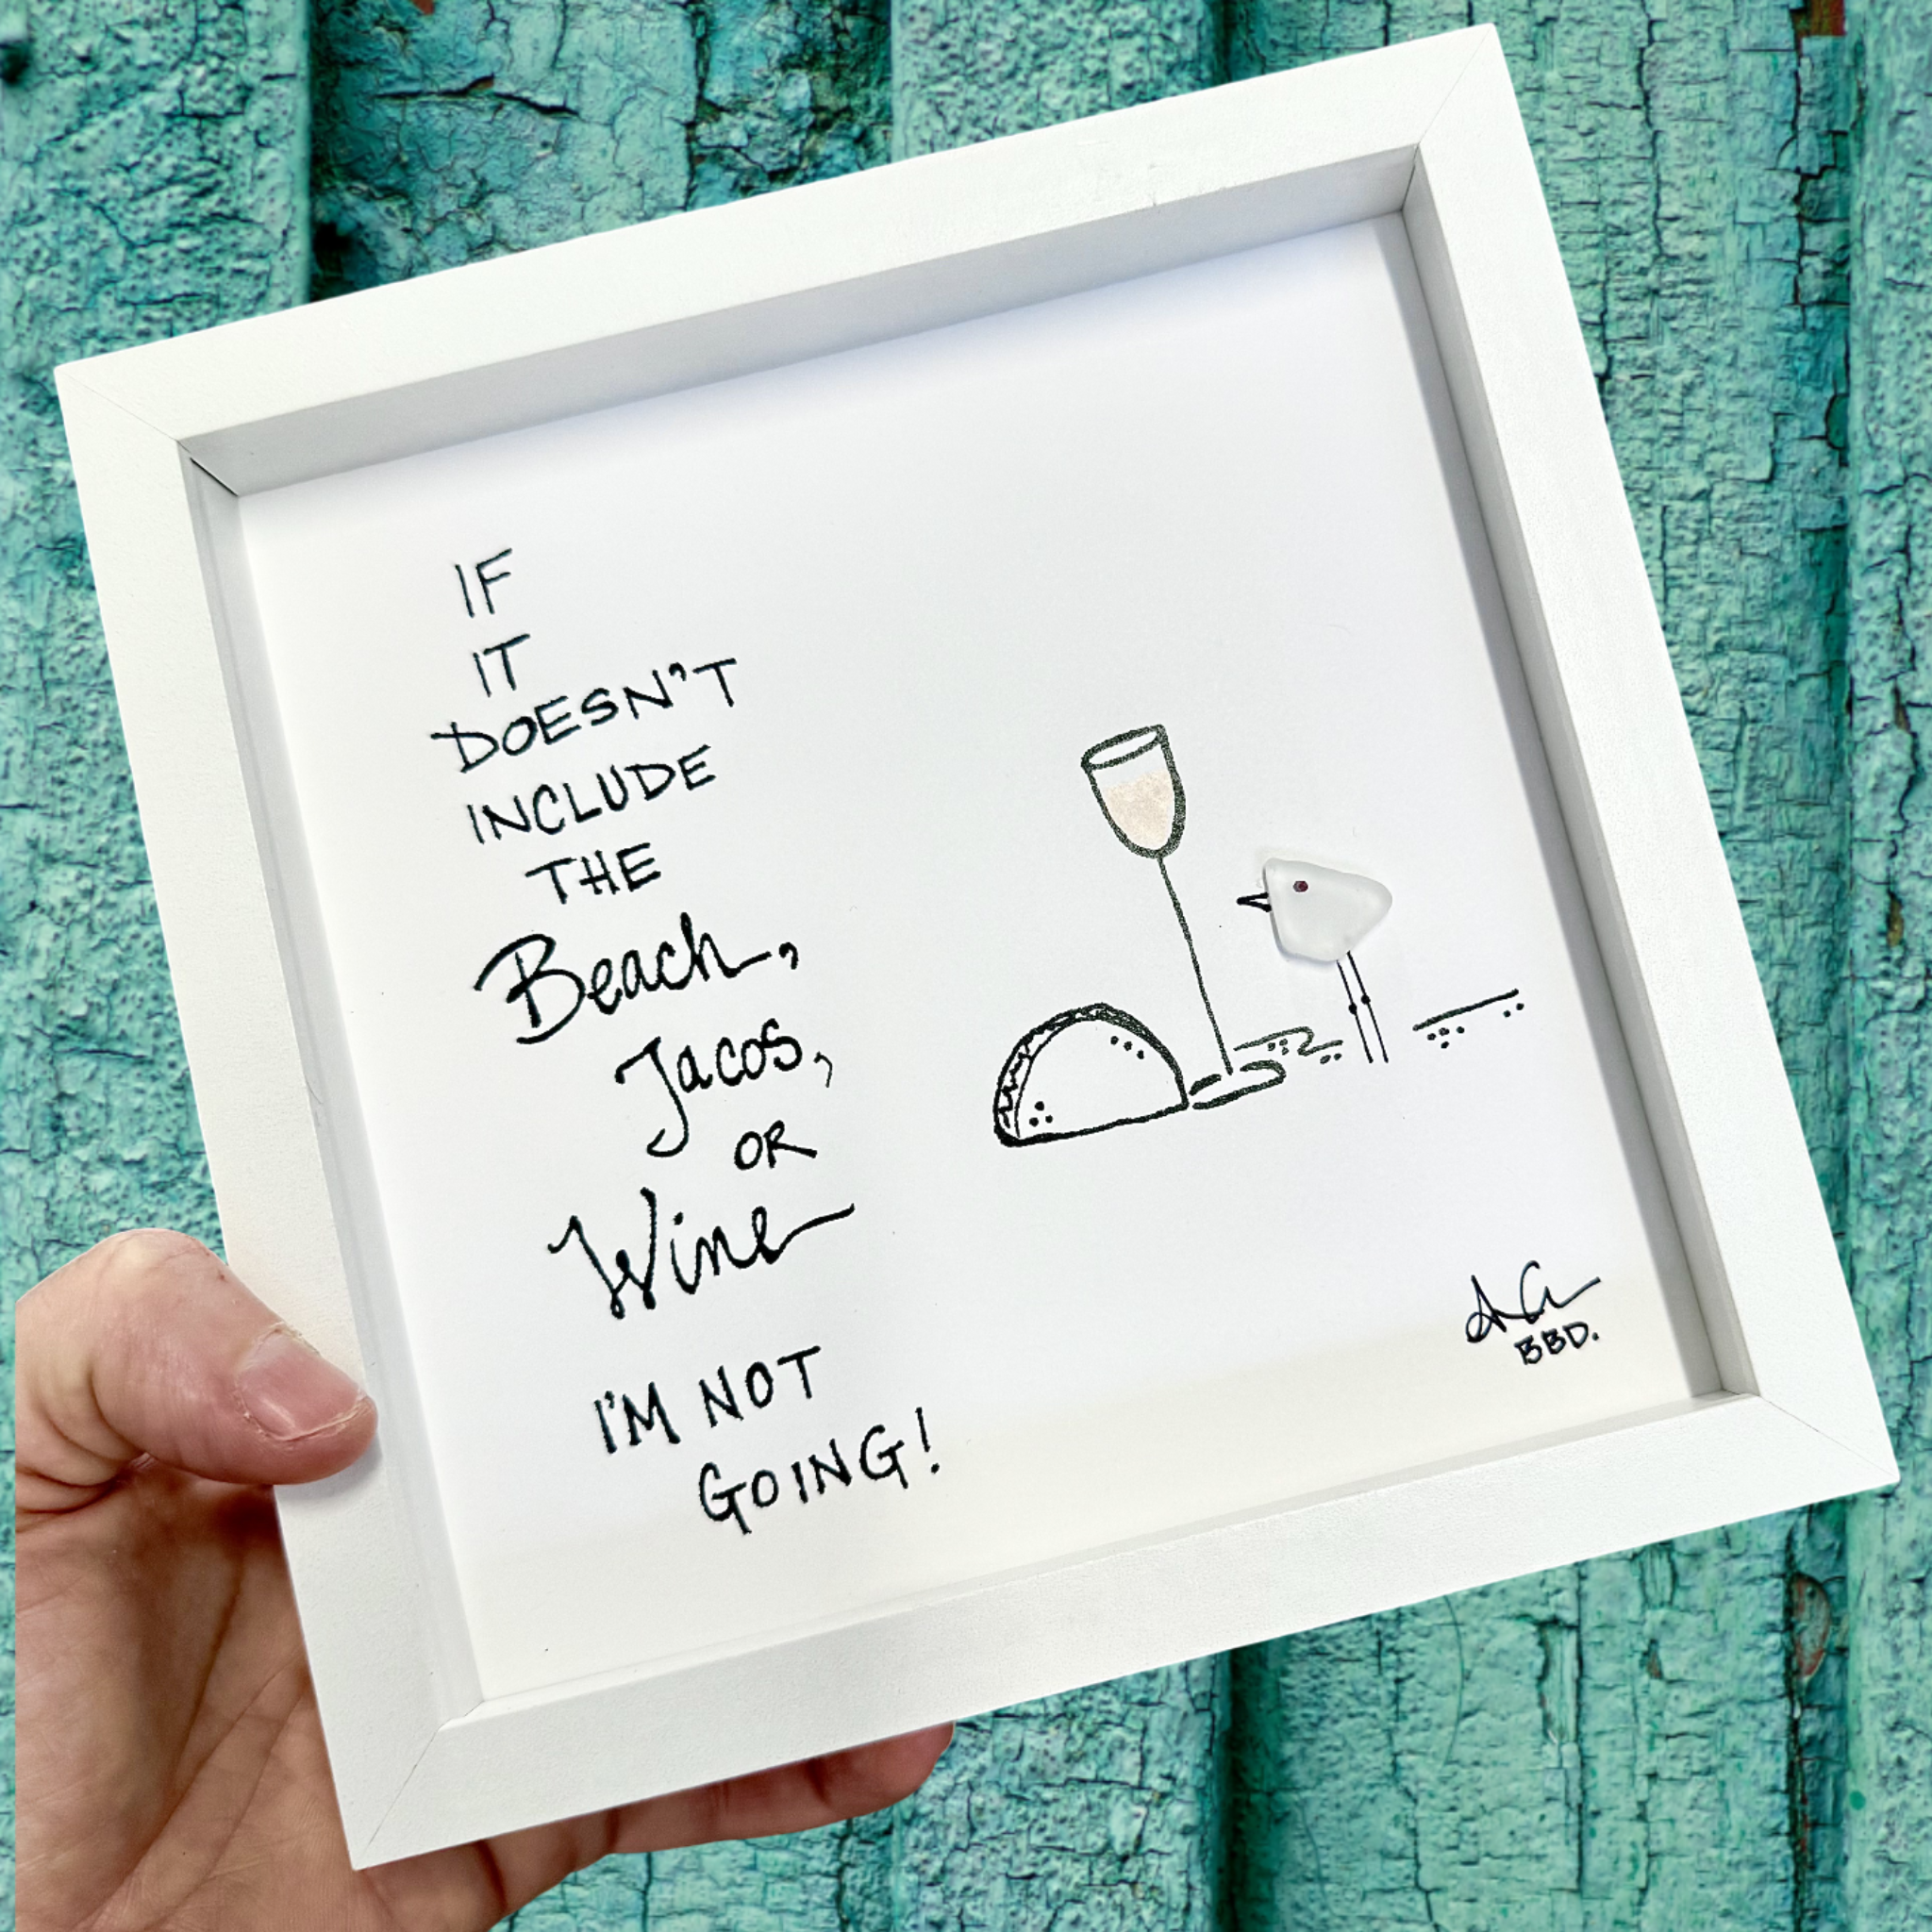 IF
IT
DOESN'T
INCLUDE
THE
Beach,
Tacos,
OR
Wine
I'M NOT
GOING!
BBD.